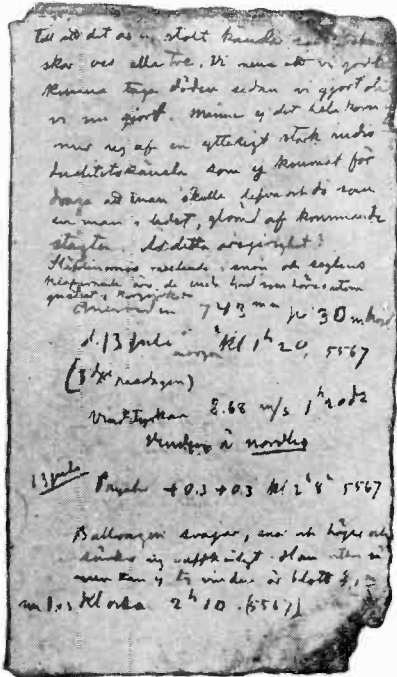 till att det är en stolt känsla som
skar oss alla tre. Vi mena att vi godt
kunna taga döden sedan vi gjort de
vi nu gjort. Månne ej det hela kom
mer sig af en ytterligt stark indivi
dualitetskänsla som ej kunnat för
draga att man skulle lefva och dö som
en man i ledet, glömd af kommande
slägten. Är detta äregirighet?
Släplinornas rasslande i snön och seglens
klapprande äro de enda ljud som höras utom
gnället i korgen
743 mm på 30 m höjd
d. 13 juli morgon Kl 1h 20, 5567
(3dje resdagen)
Vindstyrkan 2.68 m/s 1h 20
Vinden är nordlig
13 juli
Psychr +0.3 +0.3 Kl 2h 8 5567
Ballongen svajar, snor och höjer och
sänker sig oupphörligt. Han vill
men kan ej ty vinden är blott
Klockan 2h 10 (5567)